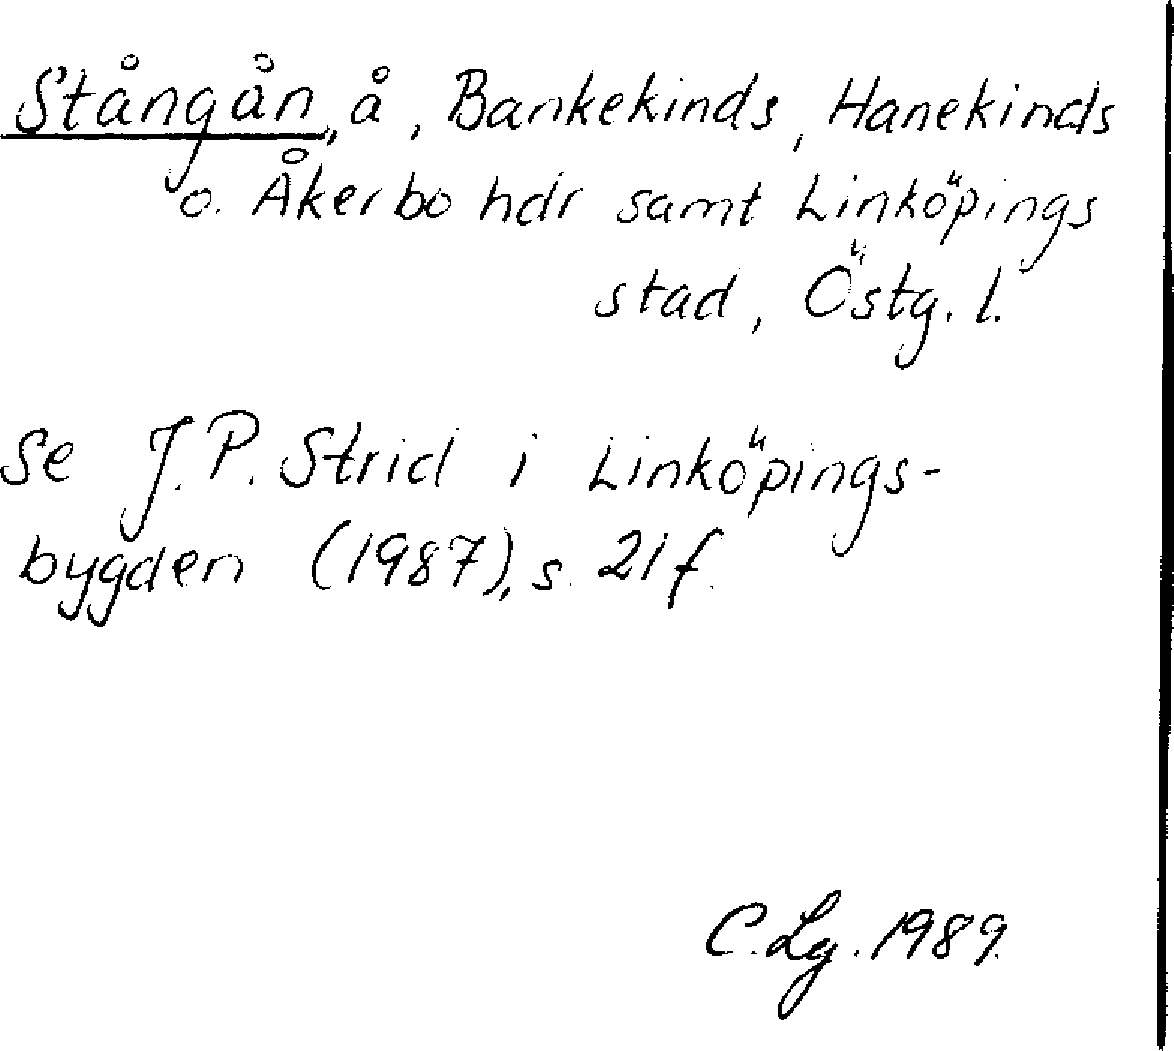 Stångån, å, Bankekinds, Hanekinds
o. Åkerbo hdr samt Linköpings
stad, Östg. l.
Se J.P. Strid i Linköpings-
bygden (1987), s. 21 f.
C.Lg. 1989.